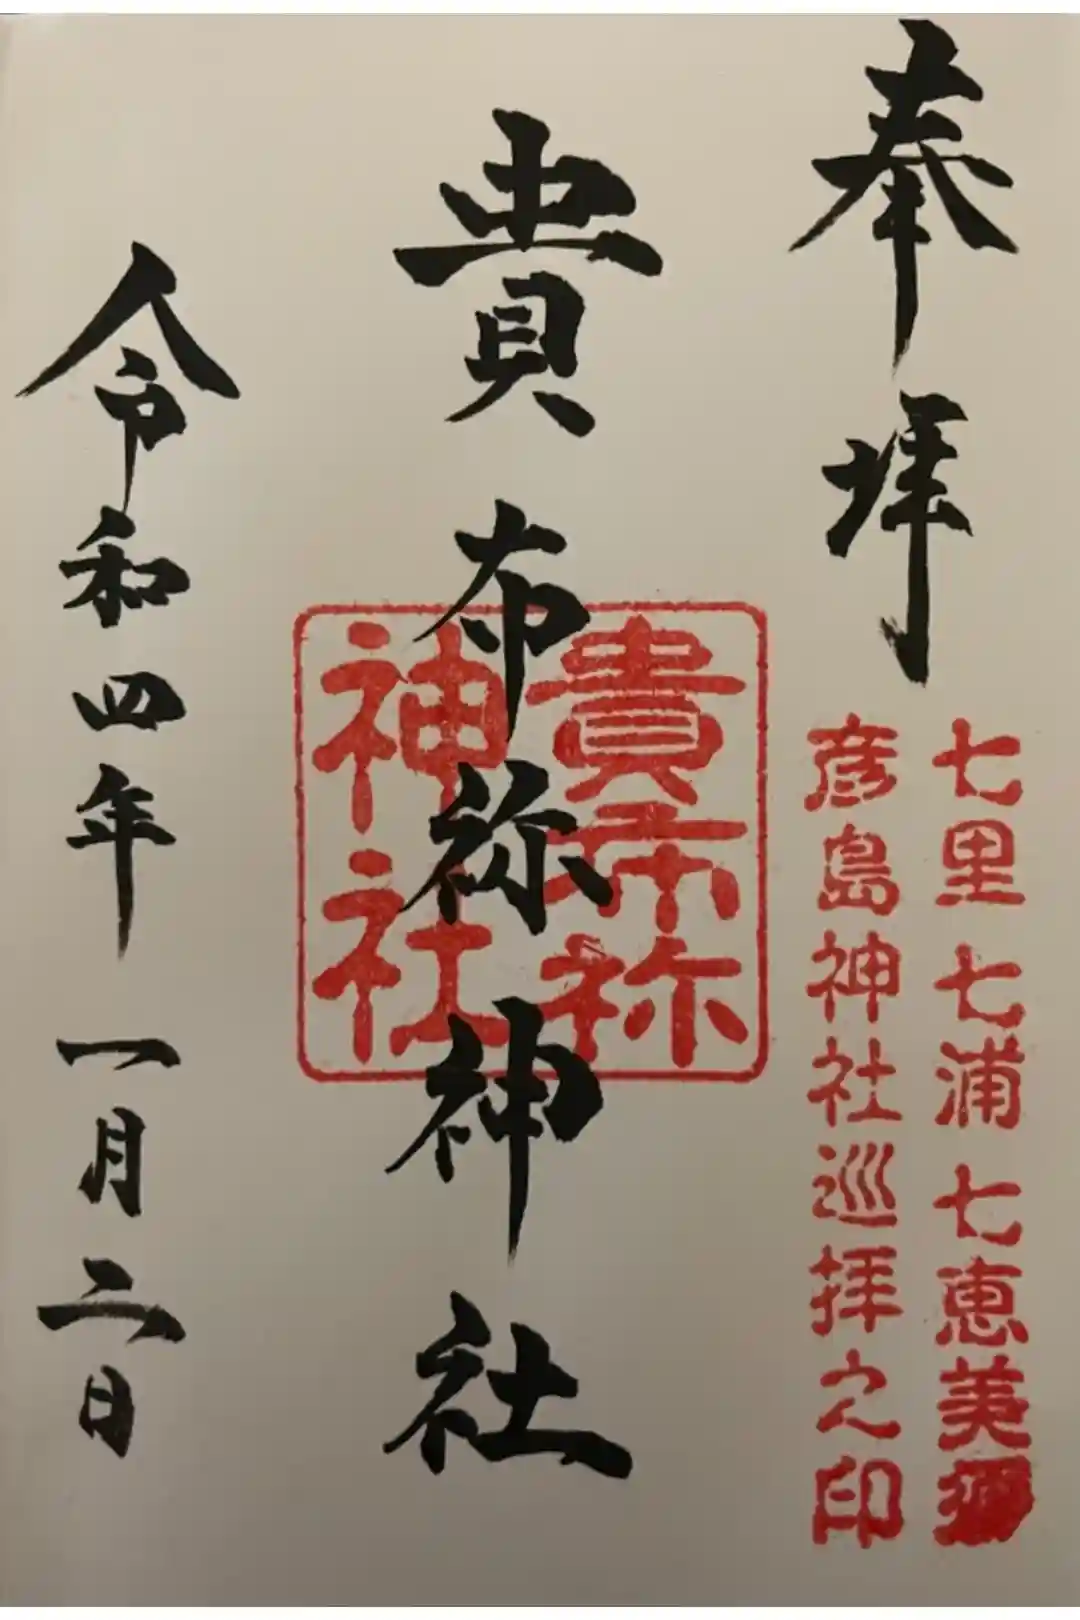 奉拝
七里七浦七恵美須
彦島神社巡拝之印
貴布祢神社
貴布祢
神社
令和四年一月二日